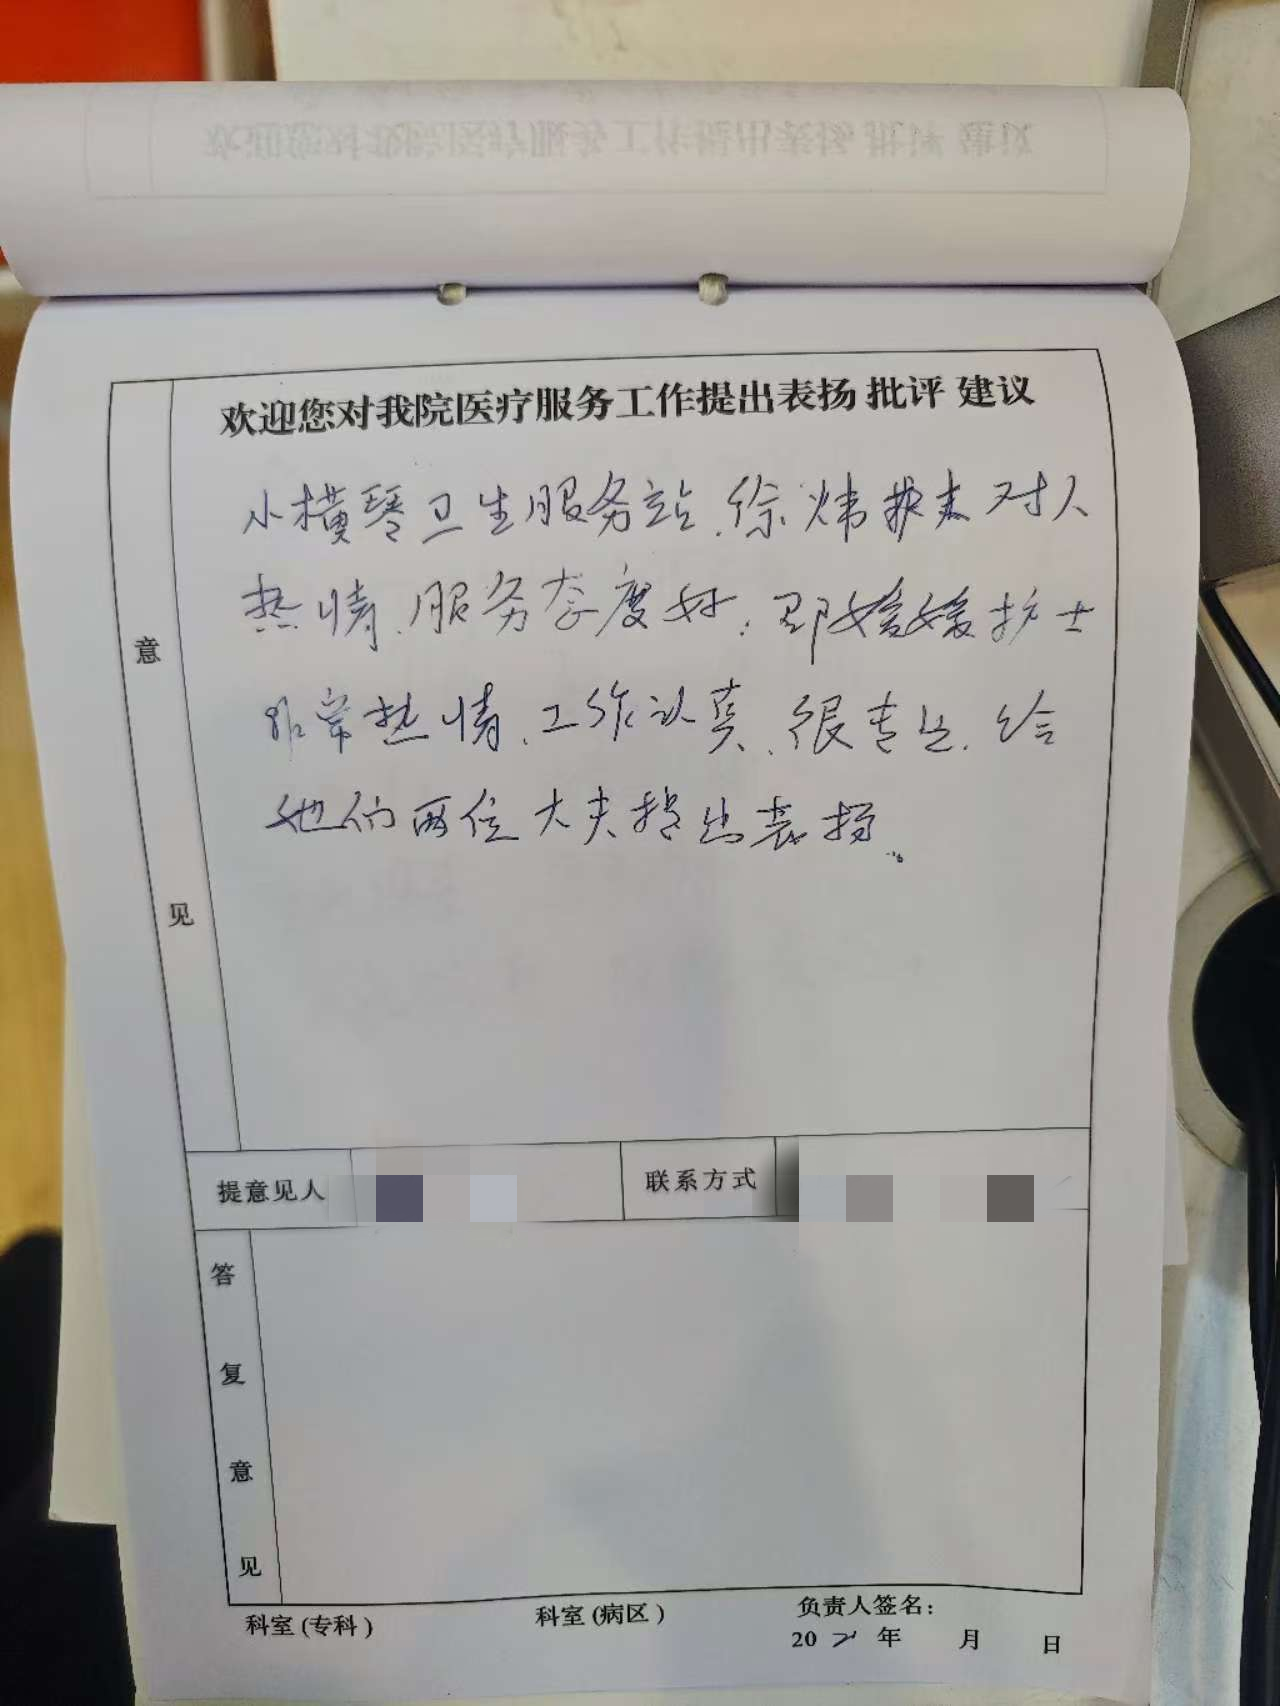 欢迎您对我院医疗服务工作提出表扬 批评 建议
小横琴卫生服务站,徐炜护士对人
热情,服务态度好,邵媛媛护士
非常热情,工作认真,很专业,给
她们两位大夫提出表扬。
意
见
提意见人
联系方式
答
复
意
见
科室(专科)
科室(病区)
负责人签名:
20 年 月 日